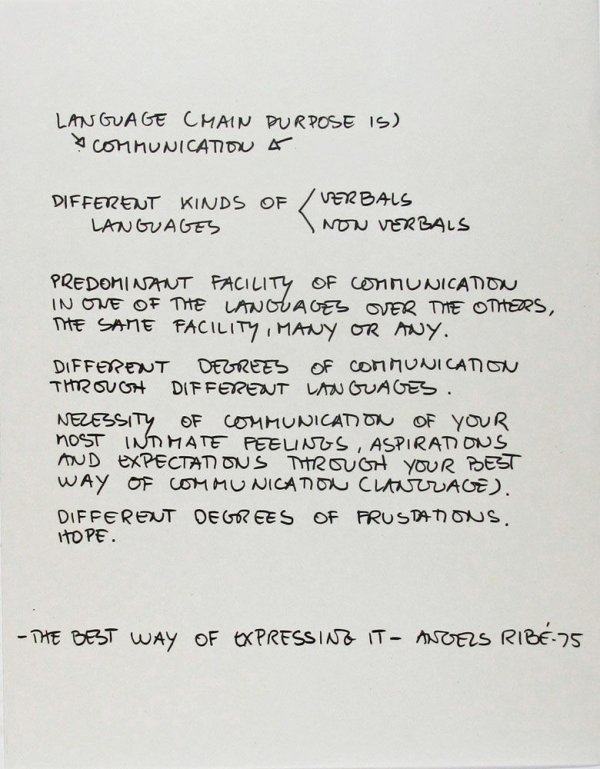 LANGUAGE (MAIN PURPOSE IS)
↘ COMMUNICATION ↙
DIFFERENT KINDS OF < VERBALS
LANGUAGES NON VERBALS
PREDOMINANT FACILITY OF COMMUNICATION
IN ONE OF THE LANGUAGES OVER THE OTHERS,
THE SAME FACILITY, MANY OR ANY.
DIFFERENT DEGREES OF COMMUNICATION
THROUGH DIFFERENT LANGUAGES.
NECESSITY OF COMMUNICATION OF YOUR
MOST INTIMATE FEELINGS, ASPIRATIONS
AND EXPECTATIONS THROUGH YOUR BEST
WAY OF COMMUNICATION (LANGUAGE).
DIFFERENT DEGREES OF FRUSTATIONS.
HOPE.
-THE BEST WAY OF EXPRESSING IT- ANGELS RIBÉ-75